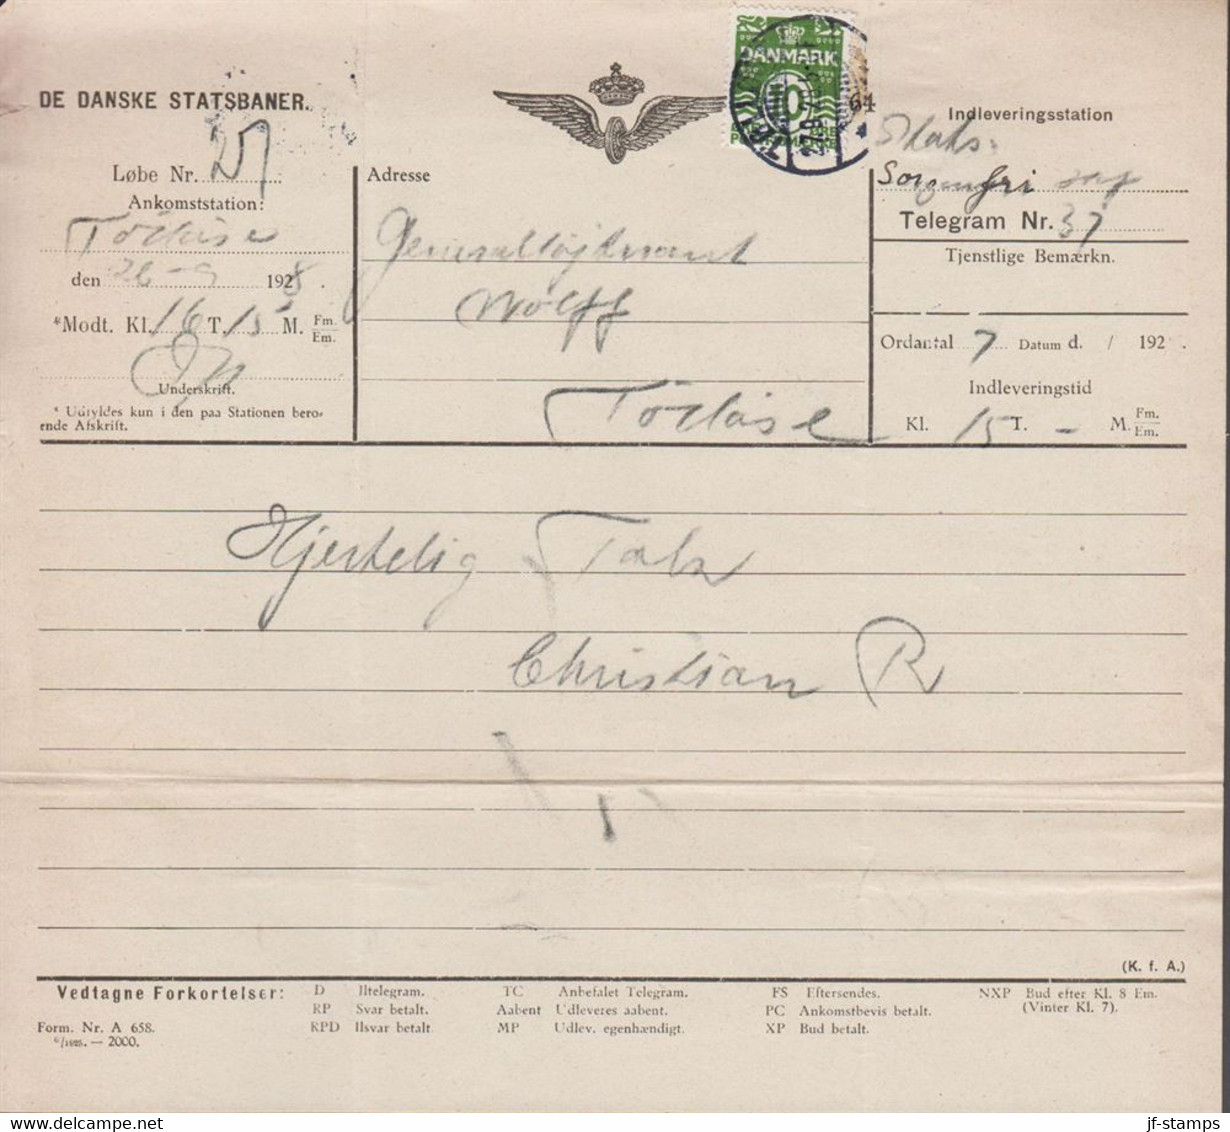 DE DANSKE STATSBANER.
DANMARK
64
Indleveringsstation
Stats-
Løbe Nr. 27
Adresse
Sorgenfri sag
Ankomststation:
Tölløse
Generalløjtnant
Telegram Nr. 37
Tjenstlige Bemærkn.
den 26-9 1928.
Wolff
*Modt. Kl. 16 T. 15 M. Fm. Em.
Ordantal 7 Datum d. / 192 .
Underskrift.
Indleveringstid
* Udfyldes kun i den paa Stationen bero-
ende Afskrift.
Tölløse
Kl. 15 T. - M. Fm. Em.
Hjertelig Tak
Christian R
(K. f. A.)
Vedtagne Forkortelser:
D Iltelegram.
RP Svar betalt.
RPD Ilsvar betalt.
TC Anbefalet Telegram.
Aabent Udleveres aabent.
MP Udlev. egenhændigt.
FS Eftersendes.
PC Ankomstbevis betalt.
XP Bud betalt.
NXP Bud efter Kl. 8 Em.
(Vinter Kl. 7).
Form. Nr. A 658.
2000.
jf-stamps